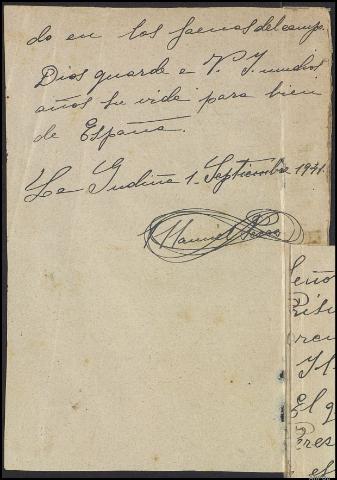 do en los faenas del campo.
Dios guarde a V. I. muchos
años su vida para bien
de España.
La Gudiña 1 - Septiembre 1941.
Manuel
Seño
Il
El q